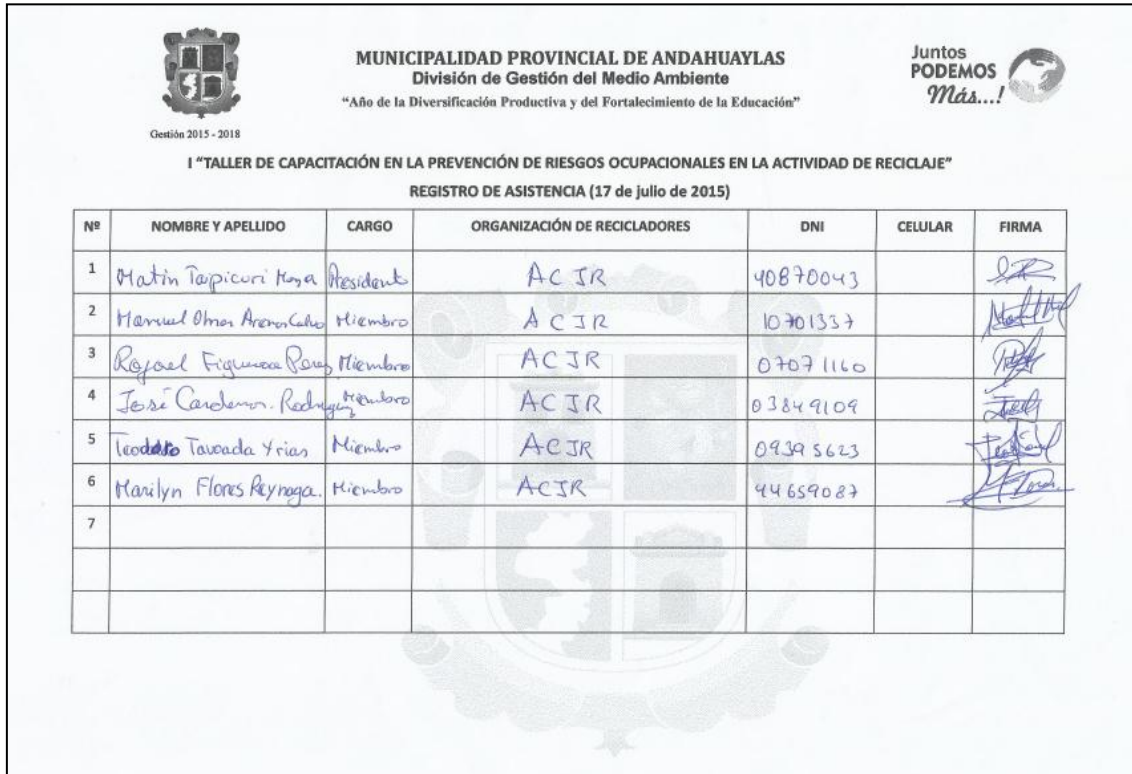 MUNICIPALIDAD PROVINCIAL DE ANDAHUAYLAS
División de Gestión del Medio Ambiente
"Año de la Diversificación Productiva y del Fortalecimiento de la Educación"
Gestión 2015 - 2018
Juntos
PODEMOS
Más...!
I "TALLER DE CAPACITACIÓN EN LA PREVENCIÓN DE RIESGOS OCUPACIONALES EN LA ACTIVIDAD DE RECICLAJE"
REGISTRO DE ASISTENCIA (17 de julio de 2015)
Nº NOMBRE Y APELLIDO CARGO ORGANIZACIÓN DE RECICLADORES DNI CELULAR FIRMA
1 Matin Presidente ACJR 40870043
2 Manuel Omar Miembro ACJR 10701337
3 Rafael Figueroa Perez Miembro ACJR 07071160
4 José Cardenas Rodriguez Miembro ACJR 03849109
5 Teodoro Taboada Yrias Miembro ACJR 09395623
6 Marilyn Flores Reynaga. Miembro ACJR 44659087
7